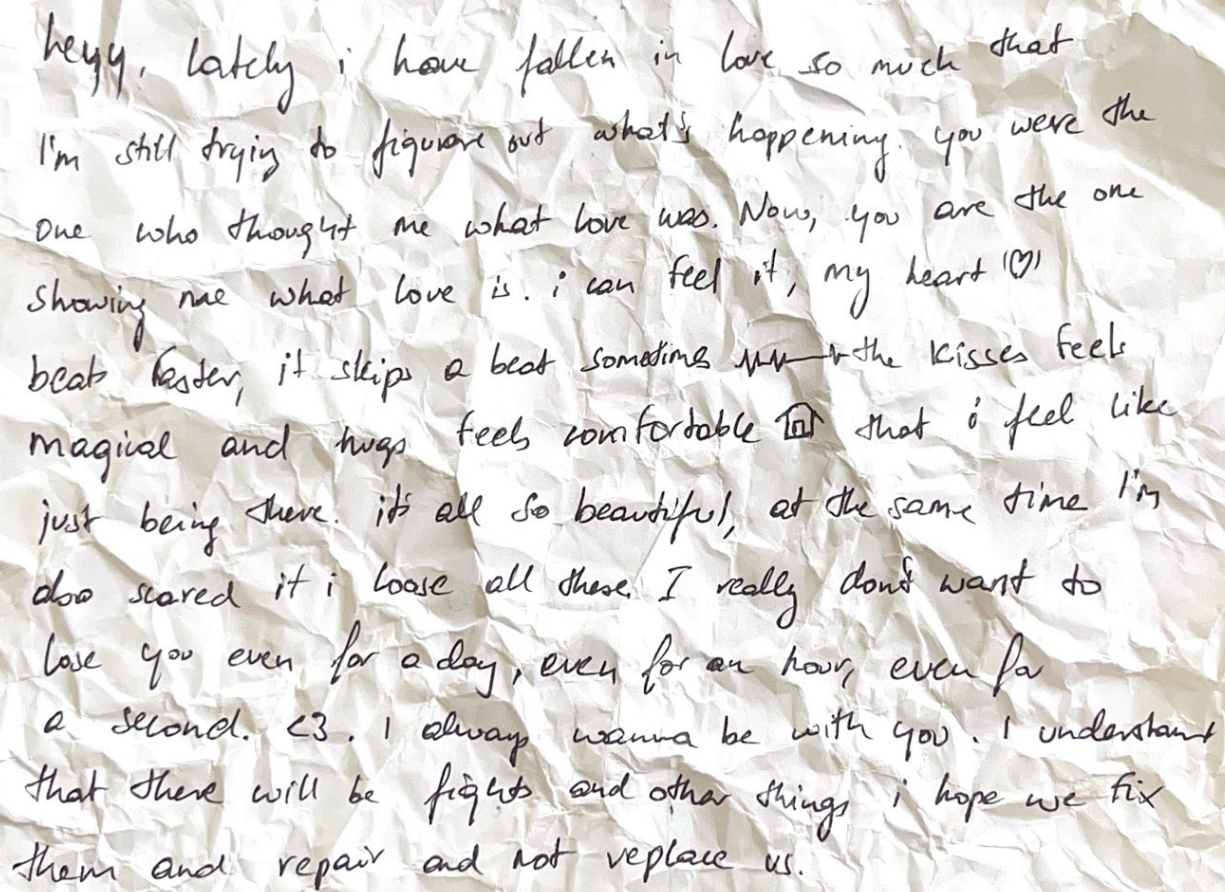 heyy, lately i have fallen in love so much that
I'm still trying to figuare out what's happening. you were the
one who thought me what love was. Now, you are the one
showing me what love is. i can feel it, my heart
beats faster, it skips a beat sometimes the kisses feels
magical and hugs feels comfortable that i feel like
just being there. it's all so beautiful, at the same time I'm
also scared if i loose all these. I really don't want to
lose you even for a day, even for an hour, even for
a second. <3. I always wanna be with you. I understand
that there will be fights and other things i hope we fix
them and repair and not replace us.